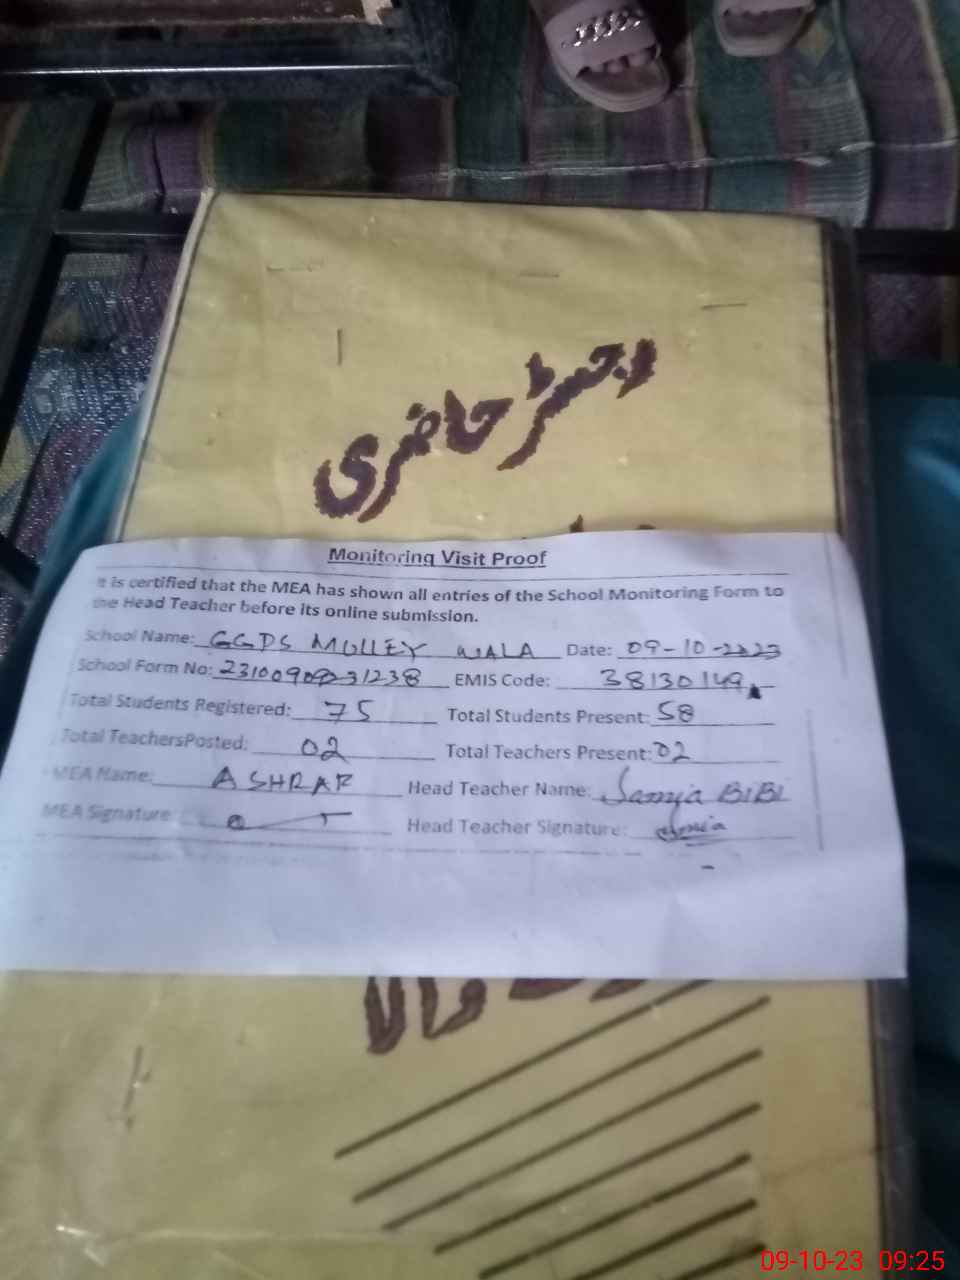 رجسٹر حاضری
Monitoring Visit Proof
It is certified that the MEA has shown all entries of the School Monitoring Form to
the Head Teacher before its online submission.
School Name: GGPS MULLEY WALA Date: 09-10-2023
School Form No: EMIS Code: 38130149
Total Students Registered: 75 Total Students Present: 58
Total TeachersPosted: 02 Total Teachers Present: 02
MEA Name: ASHRAF Head Teacher Name: Samia BIBI
MEA Signature: Head Teacher Signature: Samia
09-10-23 09:25